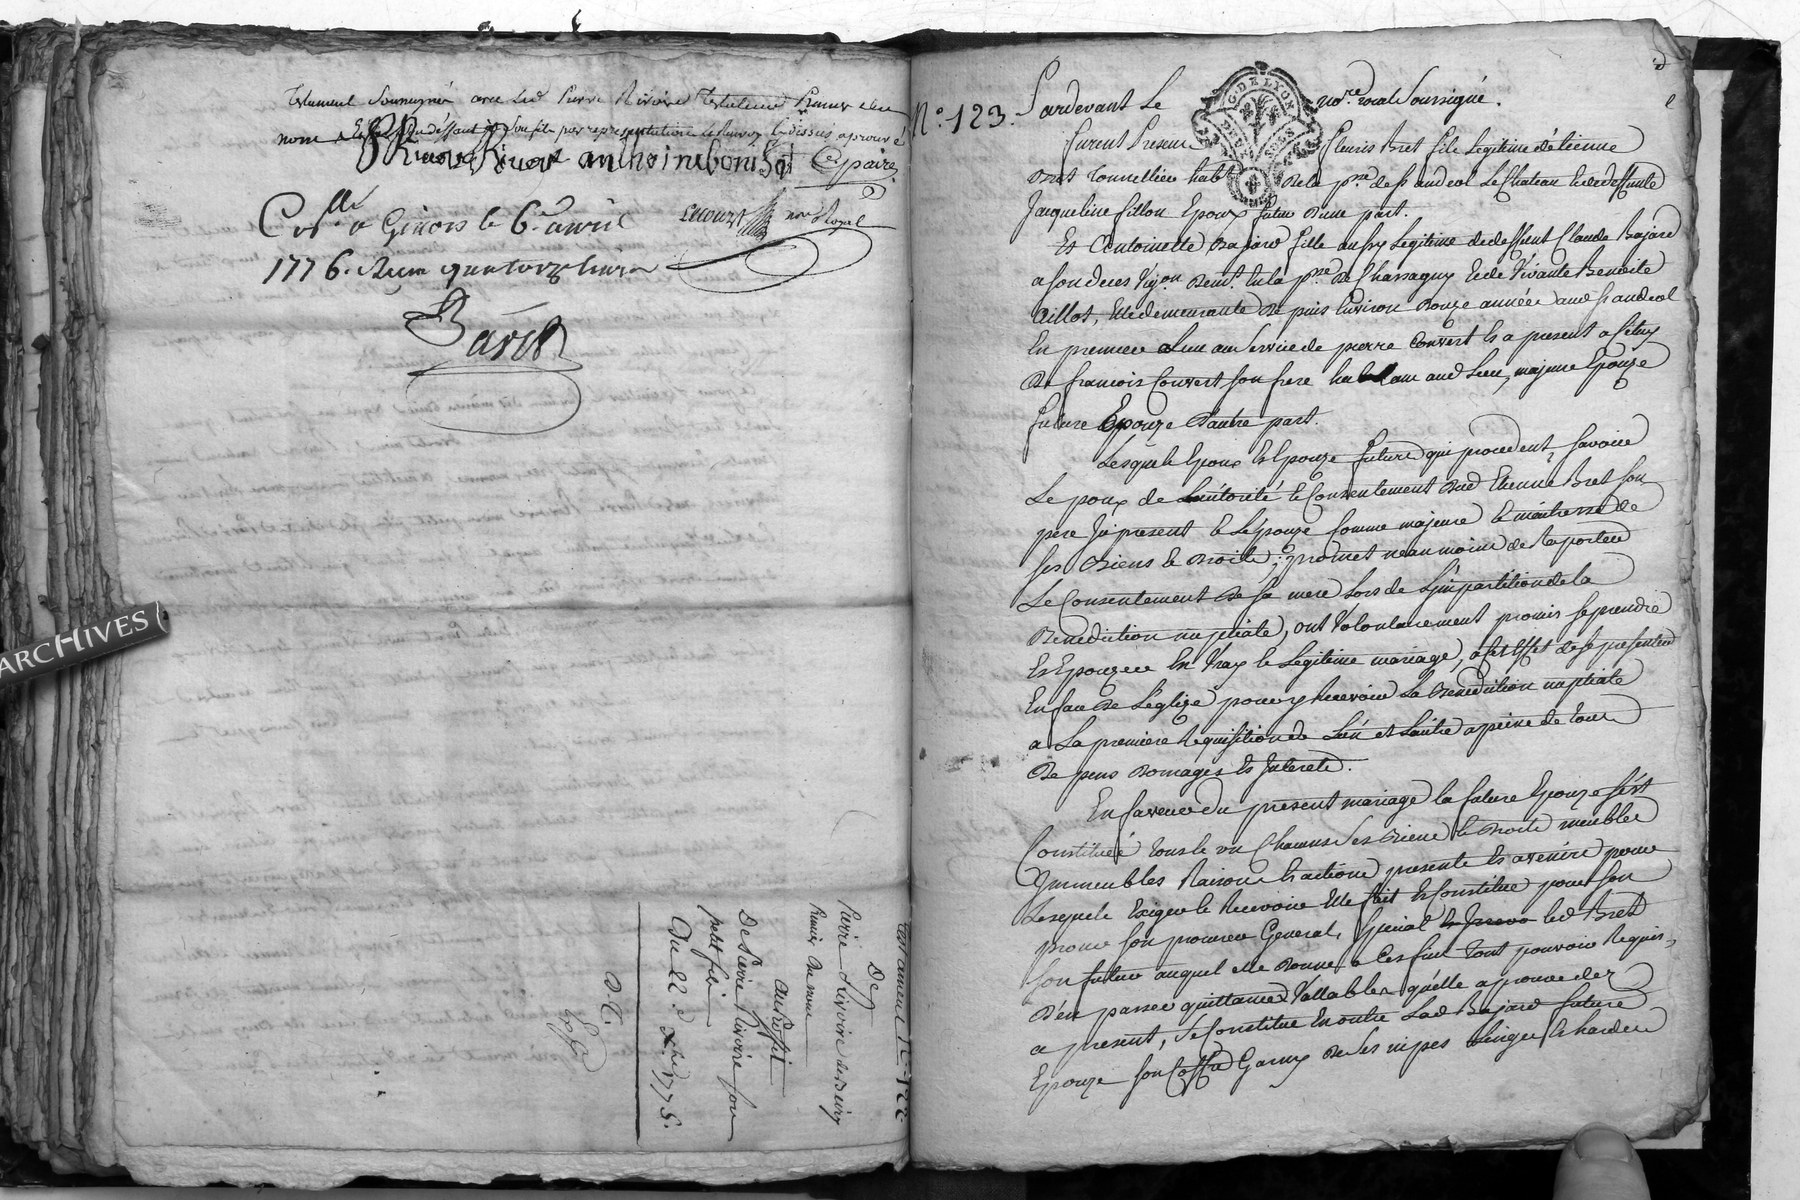 Testament Soussigné avec led Pierre Rivoire Testateur
nom
P Rivoire Rivoire anthoine bonifat Copaire
Cllé a Givors le 6e avril
Lecourt nore Royal
1776. Recu quatorze livres
Baret
Testament No 122
De
Pierre Rivoire de Bury
au Profit
De Pierre Rivoire son
petit fils
Du 22e Xbre 1775.
ARCHIVES
No. 123. Pardevant Le nore. roial Soussigné.
G. DE LYON
DEUX SOLS
furent Presens Fleuris Bret fils Legitime d'étienne
Bret Tonnellier habt de la psse de st andeol Le Chateau et de deffunte
Jacqueline fillon Epoux futur d'une part.
Et Antoinette Bajard fille aussy Legitime de deffunt Claude Bajard
a son deces Vigon demt. en la psse de Chassagny et de Vivante Benoite
Aillot, elle demeurante depuis Environ Douze années aud st andeol
En premier Lieu au Service de pierre Convert et a present a celuy
de francois Convert son frere habitant aud Lieu, majeure Epouze
future Epouze d'autre part.
Lesquels Epoux et Epouze future qui procedent, savoir
Lepoux de L'autorité et Consentement dud Etienne Bret son
pere Icy present et L'epouze Comme majeure et maitresse de
ses Biens et Droits ; promet neanmoins de Raporter
Le Consentement de sa mere Lors de L'impartition de la
Benediction nuptiale, ont Volontairement promis se prendre
et Epouzer en Vray et Legitime mariage, a cet Effet de se presenter
En face de L'église pour y Recevoir La Benediction nuptiale
a La premiere Requisition de L'un et L'autre a peine de tous
Depens Domages et Interets.
En faveur du present mariage la future Epouze s'est
Constituée tous et un Chacuns ses Biens et Droits meubles
Immeubles Raisons et actions presents et avenirs pour
Lesquels Exiger et Recevoir Elle fait et Constitue pour son
procureur General, Special led Bret
Son futur auquel elle Donne a Ces fins tout pouvoir Requis,
D'en passer quittances Vallables qu'elle approuve dez
a present, se Constitue En outre Lad Bajard future
Epouze son Coffre Garny de ses nipes Linges et hardes